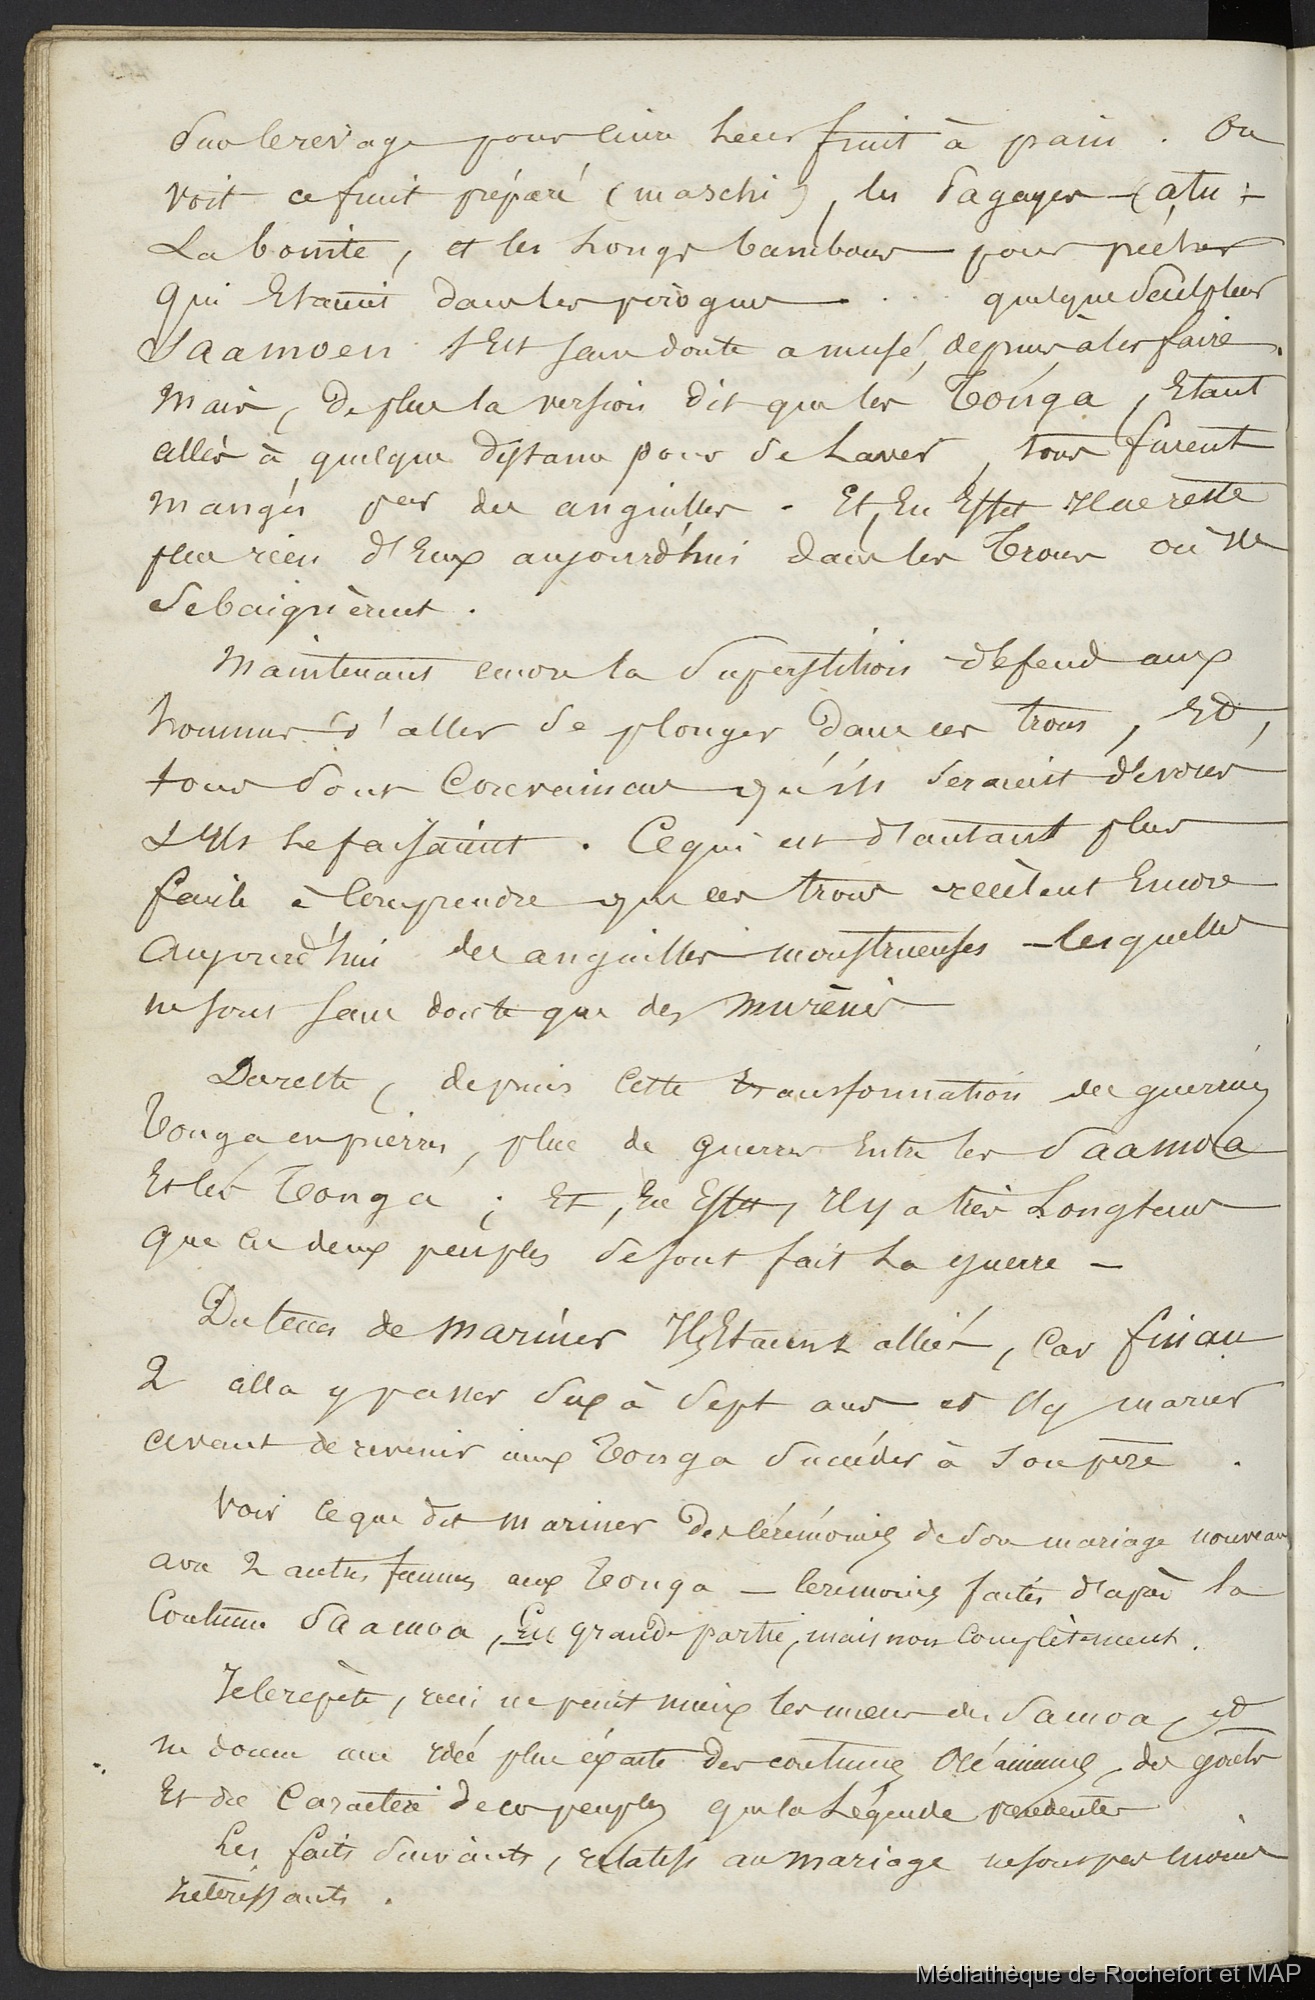 sur le rivage pour cuire leur fruit à pain . On
voit ce fruit préparé (maschi), les pagayes – (atu =
La bonite, et les longs bambous pour pêcher
qui étaient dans les pirogues . . . quelque sculpteur
Saamoen s'est sans doute amusé, depuis, à les faire.
Mais, de plus la version dit que les Tonga, étant
allés à quelque distance pour se laver, tous furent
mangés par des anguilles . Et, En Effet il ne reste
plus rien d'Eux aujourd'hui dans les trous où ils
se baignèrent .
Maintenant encore la superstition défend aux
hommes d'aller se plonger dans ces trous, Et,
tous sont convaincus qu'ils seraient dévorés
s'ils le faisaient . Ce qui est d'autant plus
facile à comprendre que ces trous recèlent Encore
aujourd'hui des anguilles monstrueuses – lesquelles
ne sont sans doute que des murènes
Du reste, depuis cette transformation des guerriers
Tonga en pierres, plus de guerres Entre les Saamoa
Et les Tonga ; Et, En Effet, il y a très Longtems
que ces deux peuples se sont fait la guerre –
Du tems de Mariner Ils Etaient alliés, Car finau
2 alla y passer six à sept ans et s'y marier
avant de revenir aux Tonga succéder à son père .
Voir ce que dit Mariner Des Cérémonies de son mariage nouveau
avec 2 autres femmes aux Tonga – Cérémonies faites d'après la
Coutume Saamoa, En grande partie, mais non complètement .
Je le répète, rien ne peint mieux les mœurs des Samoa, et
ne donne une idée plus exacte des coutumes Océaniennes, des goûts
Et du Caractère de ces peuples que la Légende précédente
Les faits suivants, relatifs au mariage ne sont pas moins
intéressants .
Médiathèque de Rochefort et MAP